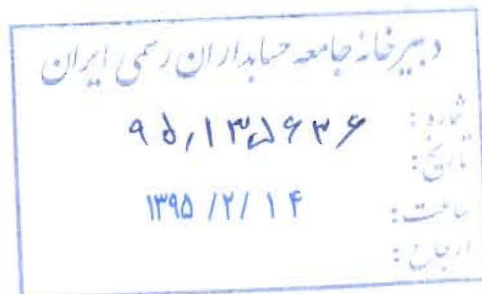 دبیرخانهٔ جامعه حسابداران رسمی ایران
شماره: ۹۵,۱۳۵۶۳۶
تاریخ: ۱۳۹۵/۲/۱۴
ساعت:
ارجاع: